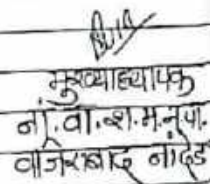 मुख्याध्यापक
नां.वा.श.म.न.पा.
वजिराबाद नांदेड